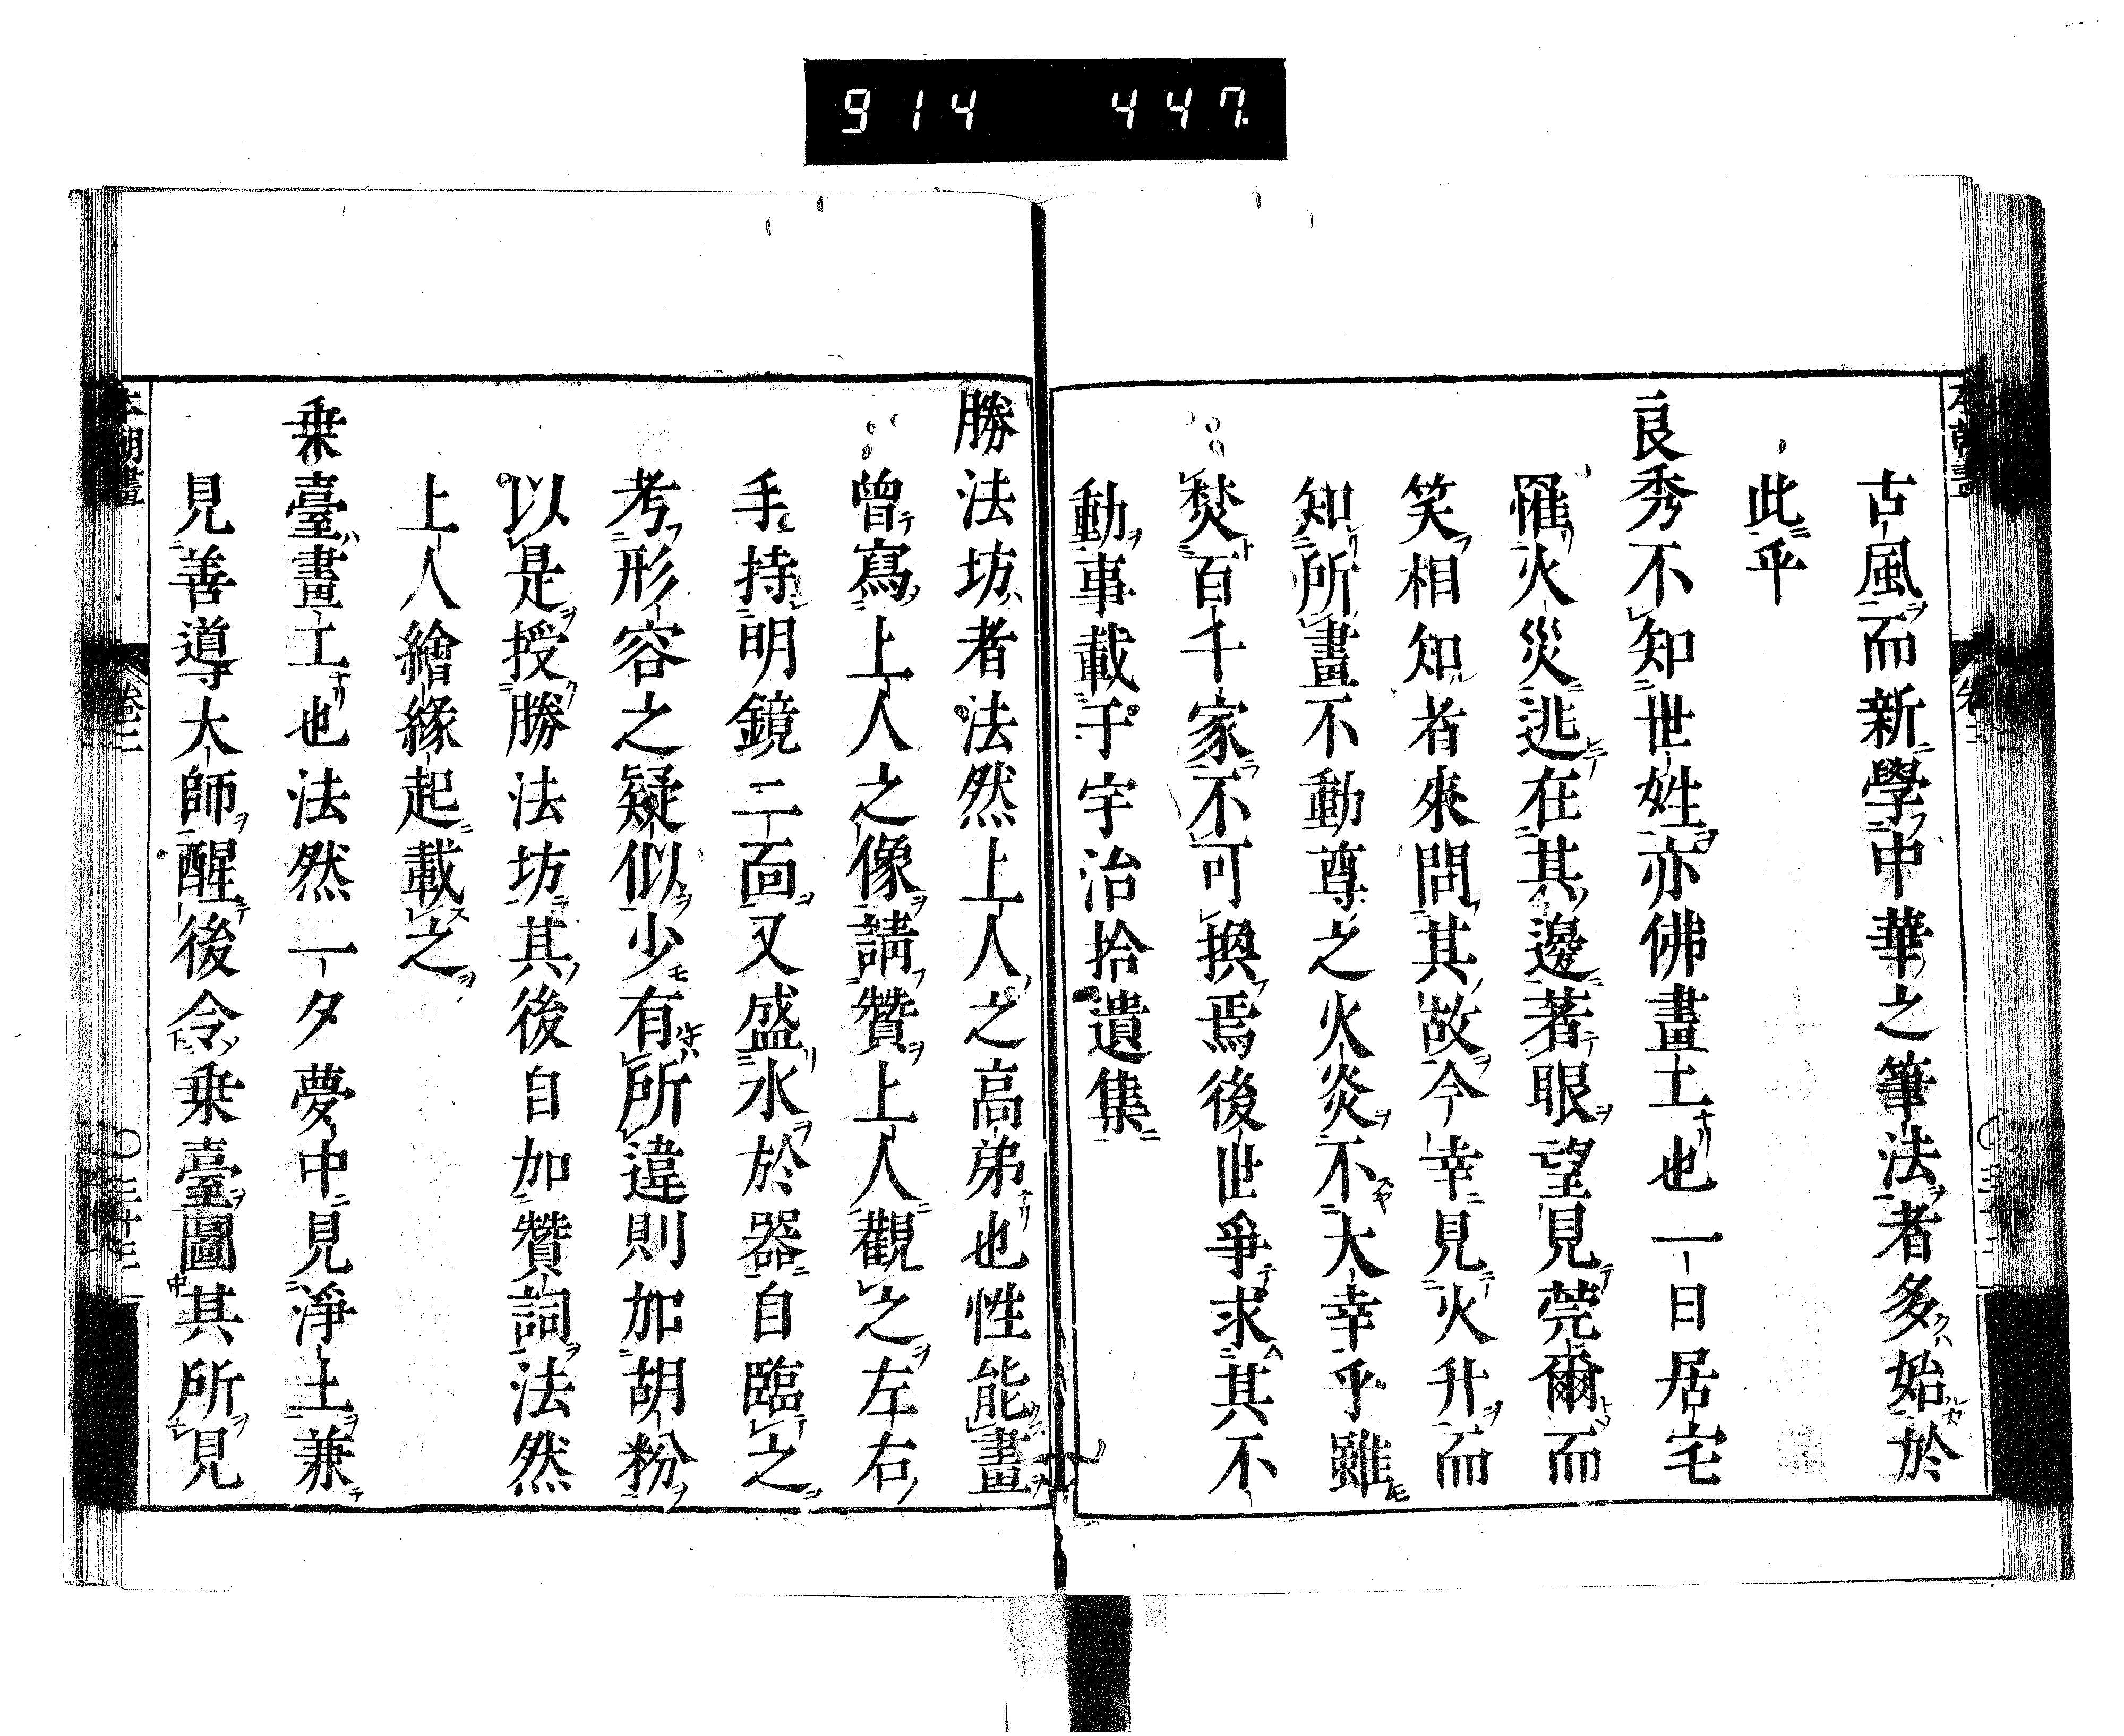 914 447
古風而新學中華之筆法者多始於
此乎
良秀不知世姓亦佛畫工也一日居宅
罹火災逃在其邊著眼望見莞爾而
笑相知者來問其故今幸見火升而
知所畫不動尊之火炎不大幸乎雖
焚百千家不可換焉後世爭求其不
動事載于宇治拾遺集
勝法坊者法然上人之高弟也性能畫
曾寫上人之像請贊上人觀之左右
手持明鏡二面又盛水於器自臨之
考形容之疑似少有所違則加胡粉
以是授勝法坊其後自加贊詞法然
上人繪緣起載之
乗臺畫工也法然一夕夢中見淨土兼
見善導大師醒後令乗臺圖其所見
本朝畫 卷二 三十三